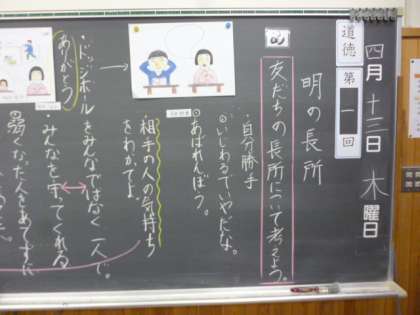 四月十三日木曜日
道徳 第一回
明の長所
め
友だちの長所について考えよう。
・自分勝手
◎いじわるでいやだな。
◎あばれんぼう。
相手の人の気持ち
をわかってよ。
ありがとう
・ドッジボールをみんなではなく一人で。
・みんなを守ってくれる
弱くなった人をあてずに